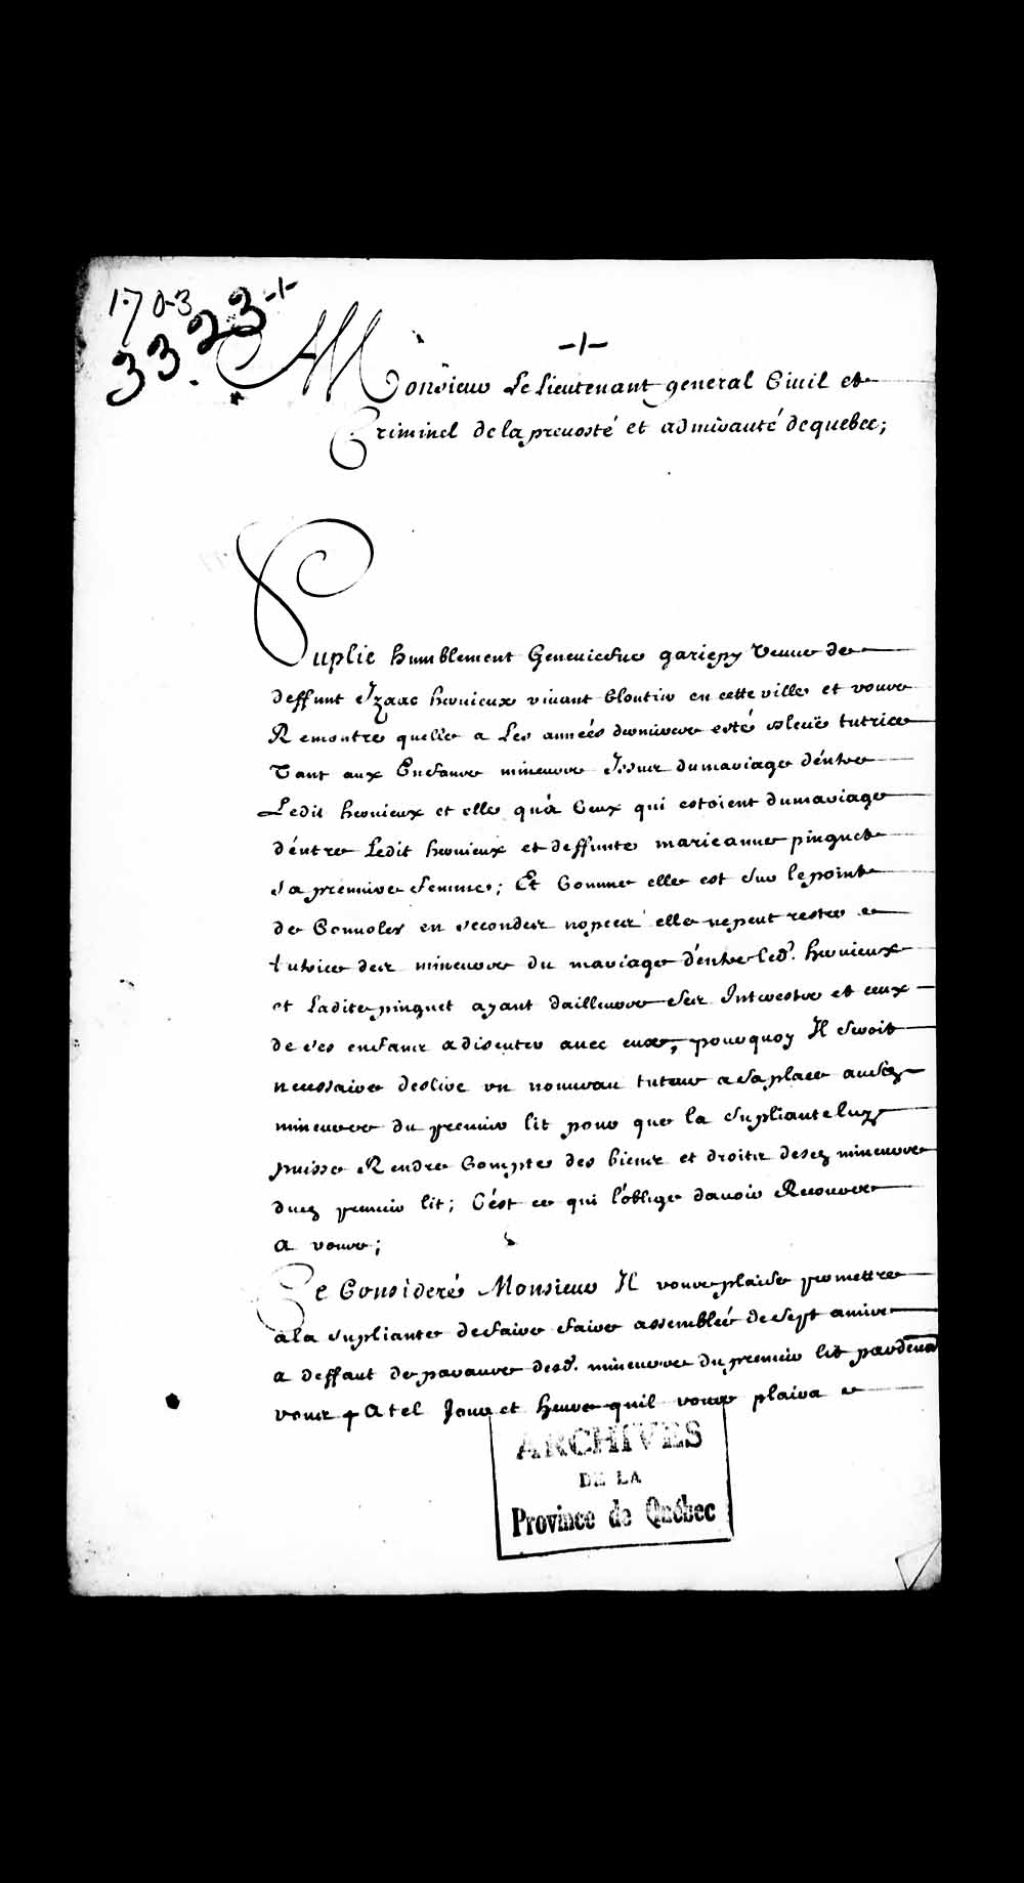 1703
3323 -1-
-1-
A Monsieur Le Lieutenant general Civil et
Criminel de la prevosté et admirauté de quebec;
Suplie humblement Geneviefve gariepy veuve de
deffunt Izaac hervieux vivant cloutier en cette ville et vous
Remontre quelle a les années dernieres esté esleüe tutrice
Tant aux Enfans mineurs Issus du mariage d'éntre
Ledit hervieux et elle qu'à Ceux qui estoient du mariage
d'éntre Ledit hervieux et deffunte marie anne pinguet
sa premiere femme; Et Comme elle est sur le point
de Convoler en secondes nopces elle ne peut rester
tutrice des mineurs du mariage d'éntre led. hervieux
et Ladite pinguet ayant dailleurs ses Interestz et ceux
de ses enfans a discuter avec eux, pourquoy Il seroit
necessaire deslire un nouveau tuteur a sa place ausdz
mineurs du premier lit pour que la supliante luy
puisse Rendre Compte des biens et droits desdz mineurs
dudz premier lit; C'ést ce qui l'oblige davoir Recours
A vous;
Ce Consideré Monsieur Il vous plaise permettre
a la supliante de faire faire assemblée de sept amis
a deffaut de parans desd. mineurs du premier lit pardevant
vous A tel Jour et heure quil vous plaira
ARCHIVES
DE LA
Province de Québec